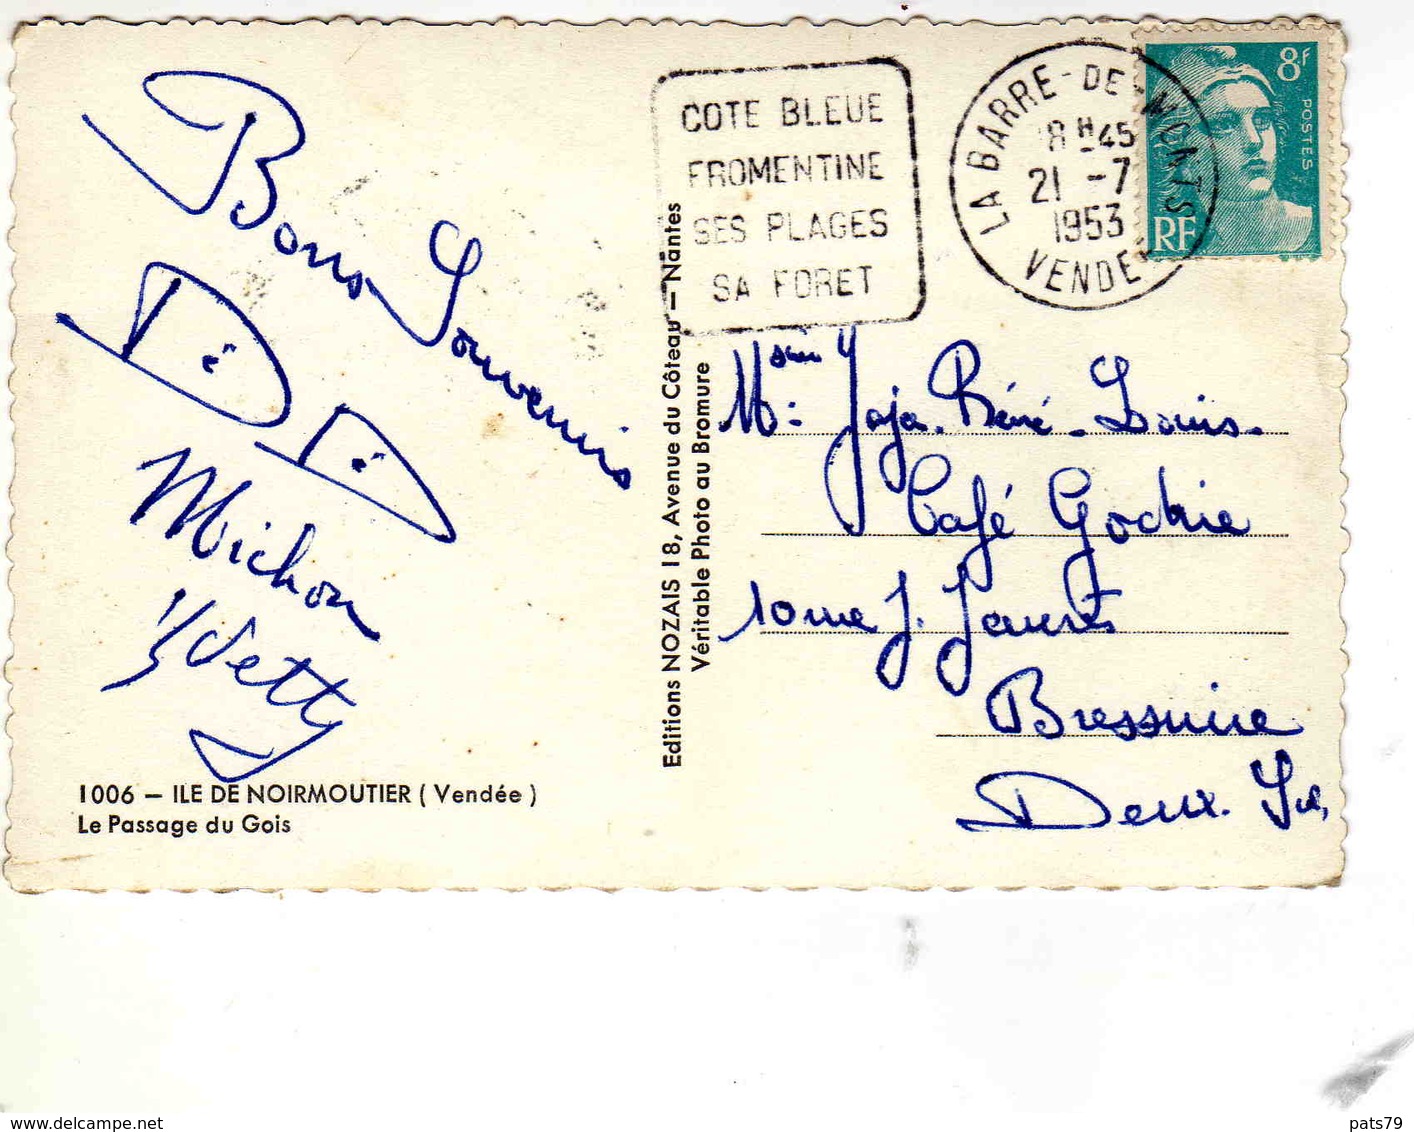 Bons Souvenirs
Dédé
Michon
Yvette
1006 — ILE DE NOIRMOUTIER ( Vendée )
Le Passage du Gois
Editions NOZAIS 18, Avenue du Côteau — Nantes
Véritable Photo au Bromure
COTE BLEUE
FROMENTINE
SES PLAGES
SA FORET
LA BARRE-DE-MONTS
8H45
21 -7
1953
VENDEE
8F
POSTES
RF
Jojo - Réné - Louis -
Café
10 rue J. Jaurès
Bressuire
Deux
pats79